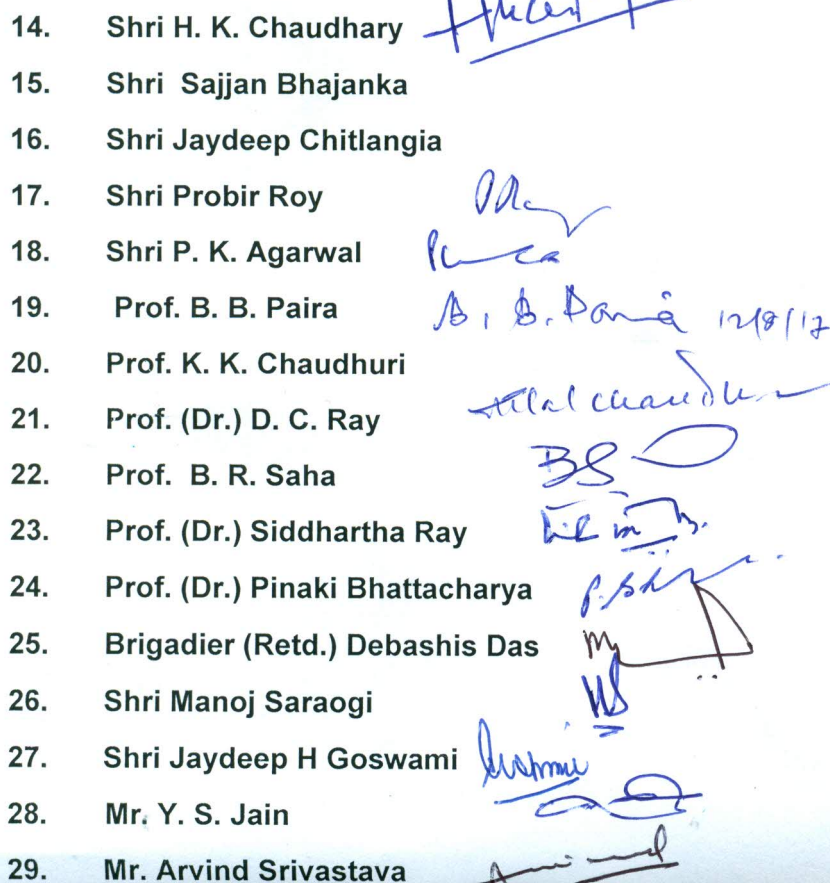 14. Shri H. K. Chaudhary
15. Shri Sajjan Bhajanka
16. Shri Jaydeep Chitlangia
17. Shri Probir Roy
18. Shri P. K. Agarwal
19. Prof. B. B. Paira B. B. Paira 12/8/17
20. Prof. K. K. Chaudhuri
21. Prof. (Dr.) D. C. Ray
22. Prof. B. R. Saha
23. Prof. (Dr.) Siddhartha Ray
24. Prof. (Dr.) Pinaki Bhattacharya
25. Brigadier (Retd.) Debashis Das
26. Shri Manoj Saraogi
27. Shri Jaydeep H Goswami
28. Mr. Y. S. Jain
29. Mr. Arvind Srivastava